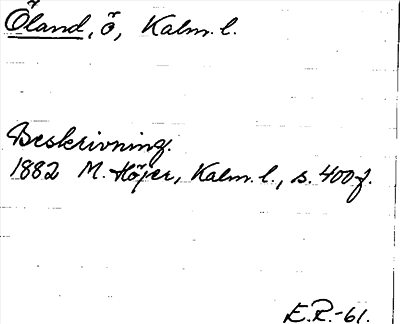 Öland, ö, Kalm. l.
Beskrivning.
1882 M. Höjer, Kalm. l., s. 400f.
E.R.-61.